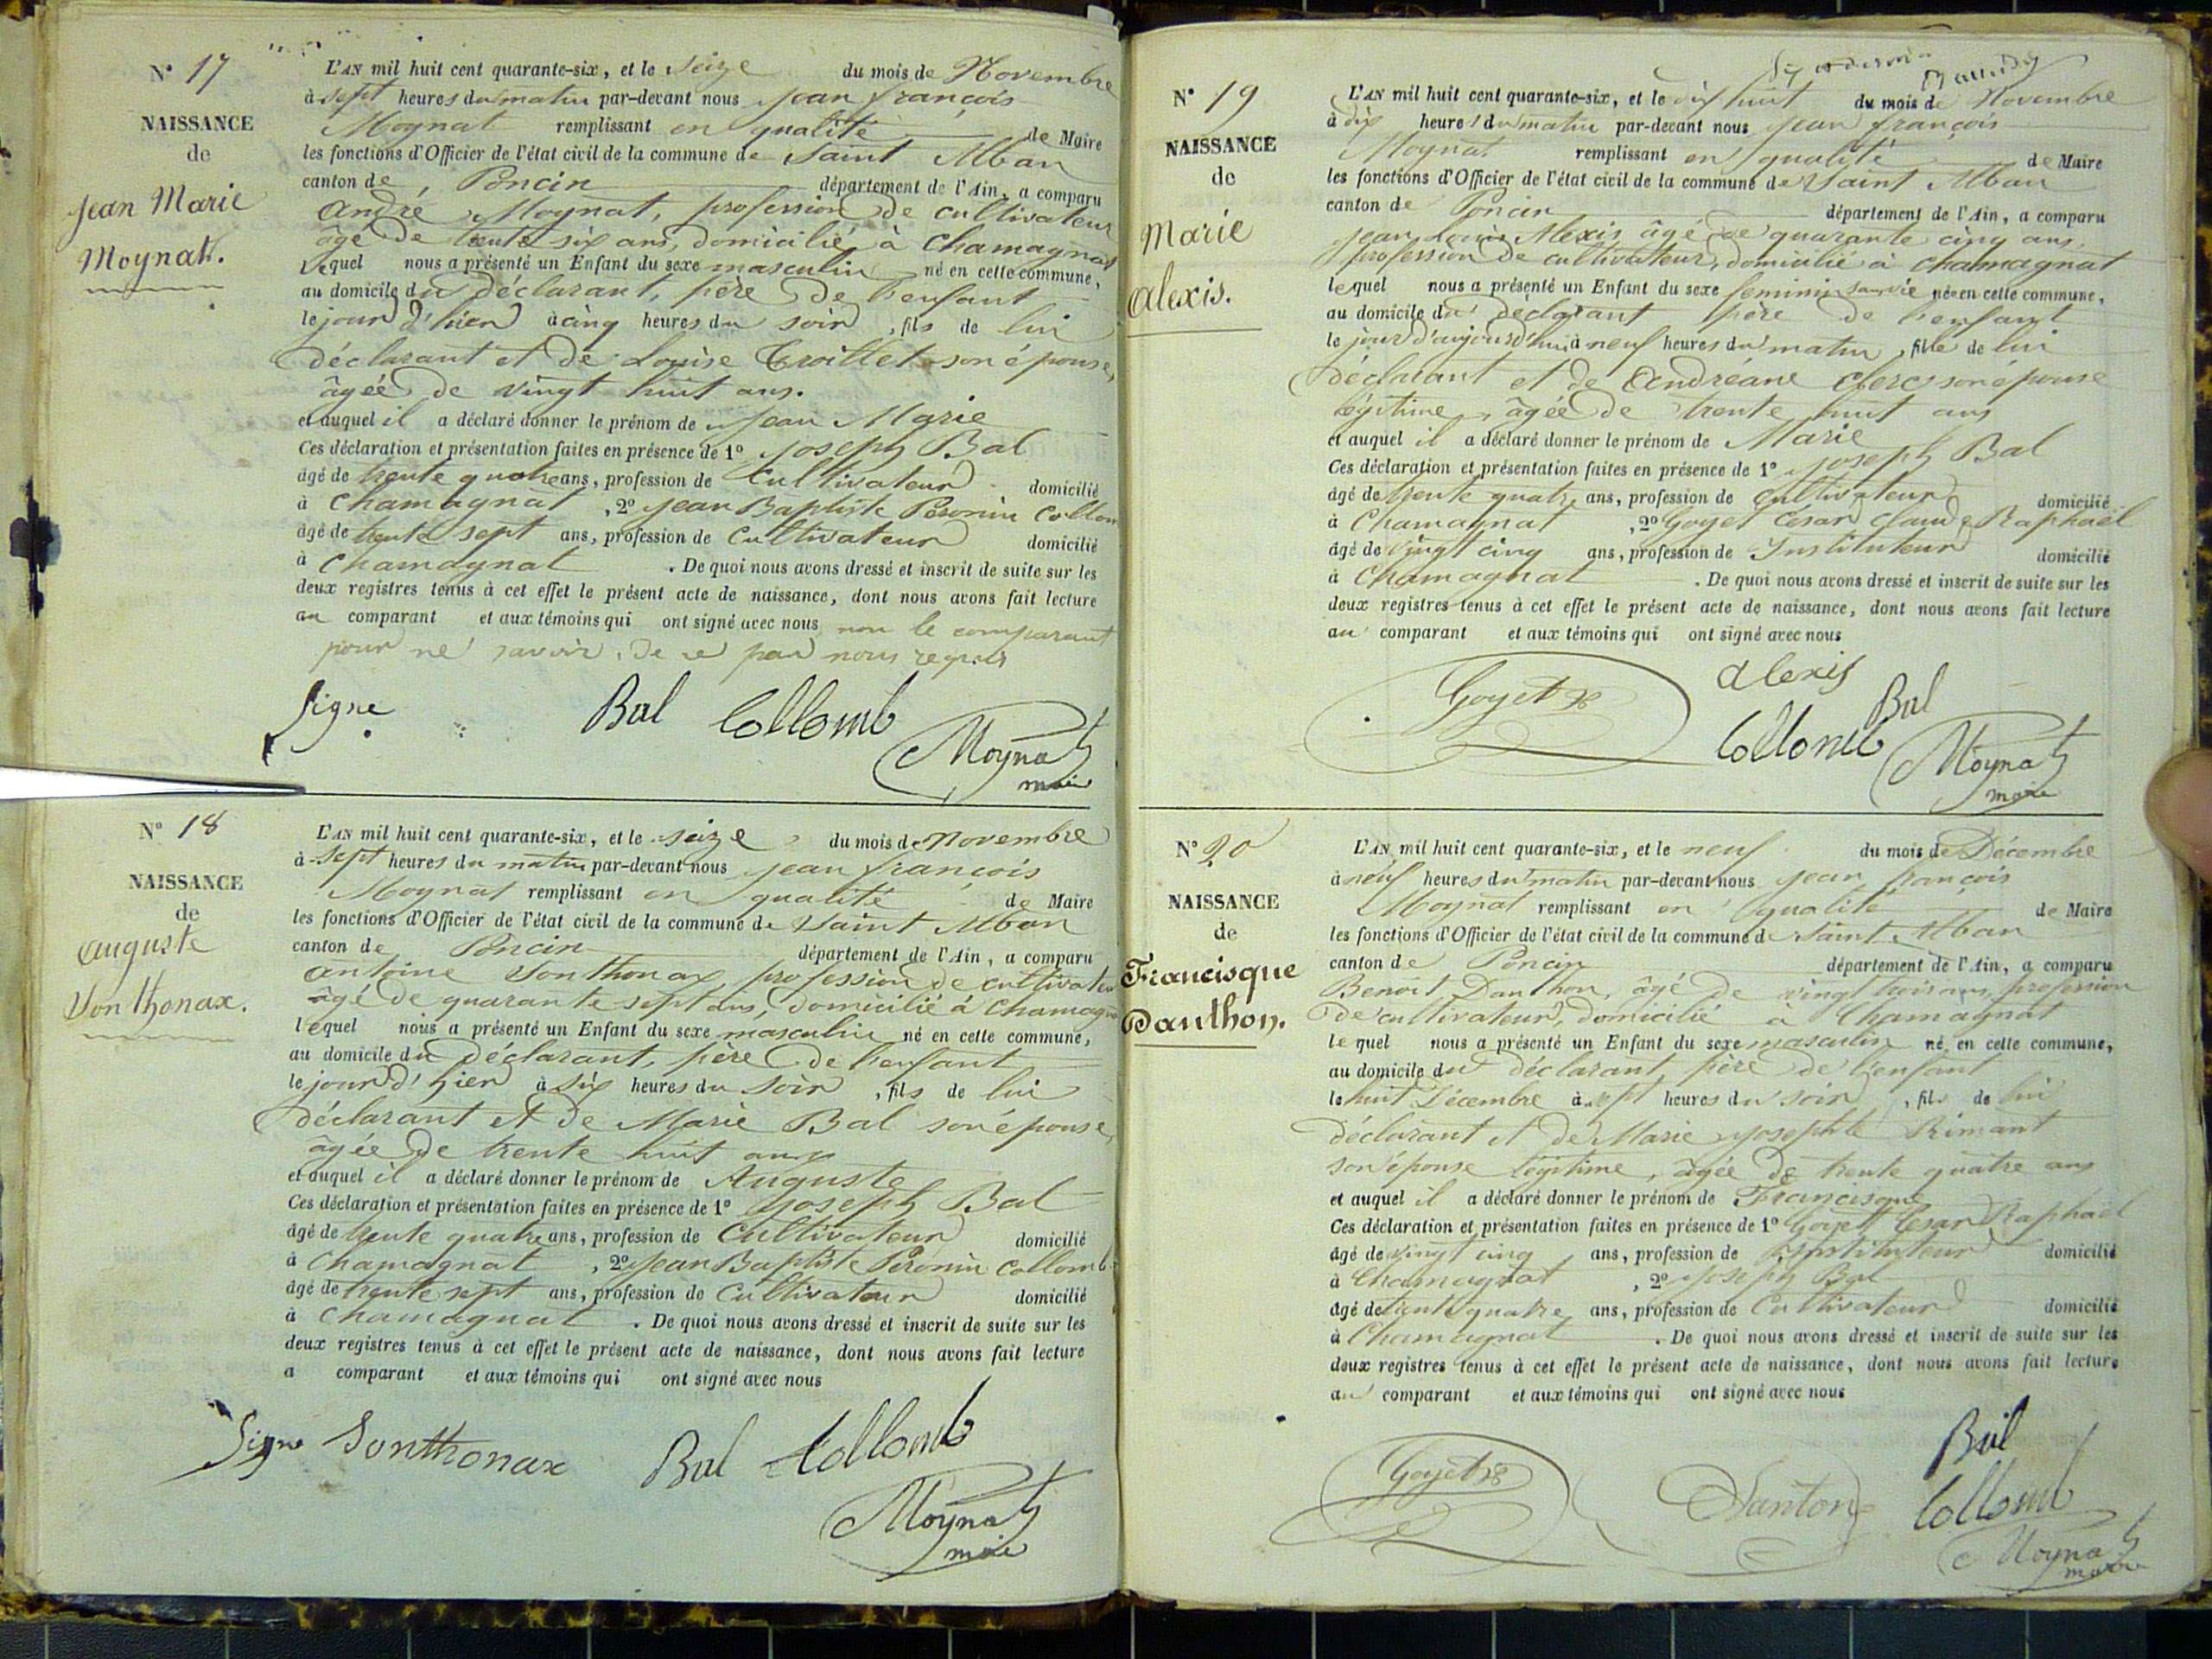 N° 17
NAISSANCE
de
Jean Marie
Moynat.
L'AN mil huit cent quarante-six, et le seize du mois de Novembre
à sept heures du matin par-devant nous Jean françois
Moynat remplissant en qualité de Maire
les fonctions d'Officier de l'état civil de la commune de Saint Alban
canton de Poncin département de l'Ain, a comparu
André Moynat, profession de cultivateur
âgé de trente six ans, domicilié à Chamagnat
lequel nous a présenté un Enfant du sexe masculin né en cette commune,
au domicile du déclarant, père de l'enfant
le jour d'hier à cinq heures du soir, fils de lui
déclarant et de Louise Troillet son épouse,
âgée de vingt huit ans.
et auquel il a déclaré donner le prénom de Jean Marie
Ces déclaration et présentation faites en présence de 1° Joseph Bal
âgé de trente quatre ans, profession de Cultivateur domicilié
à Chamagnat, 2° Jean Baptiste Péronin Collom
âgé de trente sept ans, profession de Cultivateur domicilié
à Chamagnat. De quoi nous avons dressé et inscrit de suite sur les
deux registres tenus à cet effet le présent acte de naissance, dont nous avons fait lecture
au comparant et aux témoins qui ont signé avec nous non le comparant
pour ne savoir, de ce par nous requis
Signé Bal Collomb
Moynat
maire
N° 18
NAISSANCE
de
Auguste
Sonthonax.
L'AN mil huit cent quarante-six, et le seize du mois de Novembre
à sept heures du matin par-devant nous Jean françois
Moynat remplissant en qualité de Maire
les fonctions d'Officier de l'état civil de la commune de Saint Alban
canton de Poncin département de l'Ain, a comparu
Antoine Sonthonax, profession de cultivateur
âgé de quarante sept ans, domicilié à Chamagna
lequel nous a présenté un Enfant du sexe masculin né en cette commune,
au domicile du déclarant, père de l'enfant
le jour d'hier à six heures du soir, fils de lui
déclarant et de Marie Bal son épouse,
âgée de trente huit ans
et auquel il a déclaré donner le prénom de Auguste
Ces déclaration et présentation faites en présence de 1° Joseph Bal
âgé de trente quatre ans, profession de Cultivateur domicilié
à Chamagnat, 2° Jean Baptiste Péronin Collomb
âgé de trente sept ans, profession de Cultivateur domicilié
à Chamagnat. De quoi nous avons dressé et inscrit de suite sur les
deux registres tenus à cet effet le présent acte de naissance, dont nous avons fait lecture
a comparant et aux témoins qui ont signé avec nous
Signé Sonthonax Bal Collomb
Moynat
maire
N° 19
NAISSANCE
de
Marie
Alexis.
L'AN mil huit cent quarante-six, et le dix huit du mois de Novembre
à dix heures du matin par-devant nous Jean françois
Moynat remplissant en qualité de Maire
les fonctions d'Officier de l'état civil de la commune de Saint Alban
canton de Poncin département de l'Ain, a comparu
Jean Louis Alexis âgé de quarante cinq ans,
profession de cultivateur, domicilié à Chamagnat
lequel nous a présenté un Enfant du sexe feminin sans vie née en cette commune,
au domicile du déclarant père de l'enfant
le jour d'aujourd'hui à neuf heures du matin, fille de lui
déclarant et de Andréane Clerc son épouse
légitime, âgée de trente huit ans
et auquel il a déclaré donner le prénom de Marie
Ces déclaration et présentation faites en présence de 1° Joseph Bal
âgé de trente quatre ans, profession de Cultivateur domicilié
à Chamagnat, 2° Goyet César Claude Raphaël
âgé de vingt cinq ans, profession de Instituteur domicilié
à Chamagnat. De quoi nous avons dressé et inscrit de suite sur les
deux registres tenus à cet effet le présent acte de naissance, dont nous avons fait lecture
au comparant et aux témoins qui ont signé avec nous
Goyet Alexis Bal
Collomb Moynat
maire
N° 20
NAISSANCE
de
Francisque
Danthon.
L'AN mil huit cent quarante-six, et le neuf du mois de Décembre
à neuf heures du matin par-devant nous Jean françois
Moynat remplissant en qualité de Maire
les fonctions d'Officier de l'état civil de la commune de Saint Alban
canton de Poncin département de l'Ain, a comparu
Benoit Danthon, âgé de vingt trois ans, profession
de cultivateur, domicilié à Chamagnat
lequel nous a présenté un Enfant du sexe masculin né en cette commune,
au domicile du déclarant père de l'enfant
le huit Décembre à sept heures du soir, fils de lui
déclarant et de Marie Josephte Rimant
son épouse légitime, âgée de trente quatre ans
et auquel il a déclaré donner le prénom de Francisque
Ces déclaration et présentation faites en présence de 1° Goyet César Raphaël
âgé de vingt cinq ans, profession de Instituteur domicilié
à Chamagnat, 2° Joseph Bal
âgé de trente quatre ans, profession de Cultivateur domicilié
à Chamagnat. De quoi nous avons dressé et inscrit de suite sur les
deux registres tenus à cet effet le présent acte de naissance, dont nous avons fait lecture
au comparant et aux témoins qui ont signé avec nous
Bal
Goyet Danton Collomb
Moynat
maire